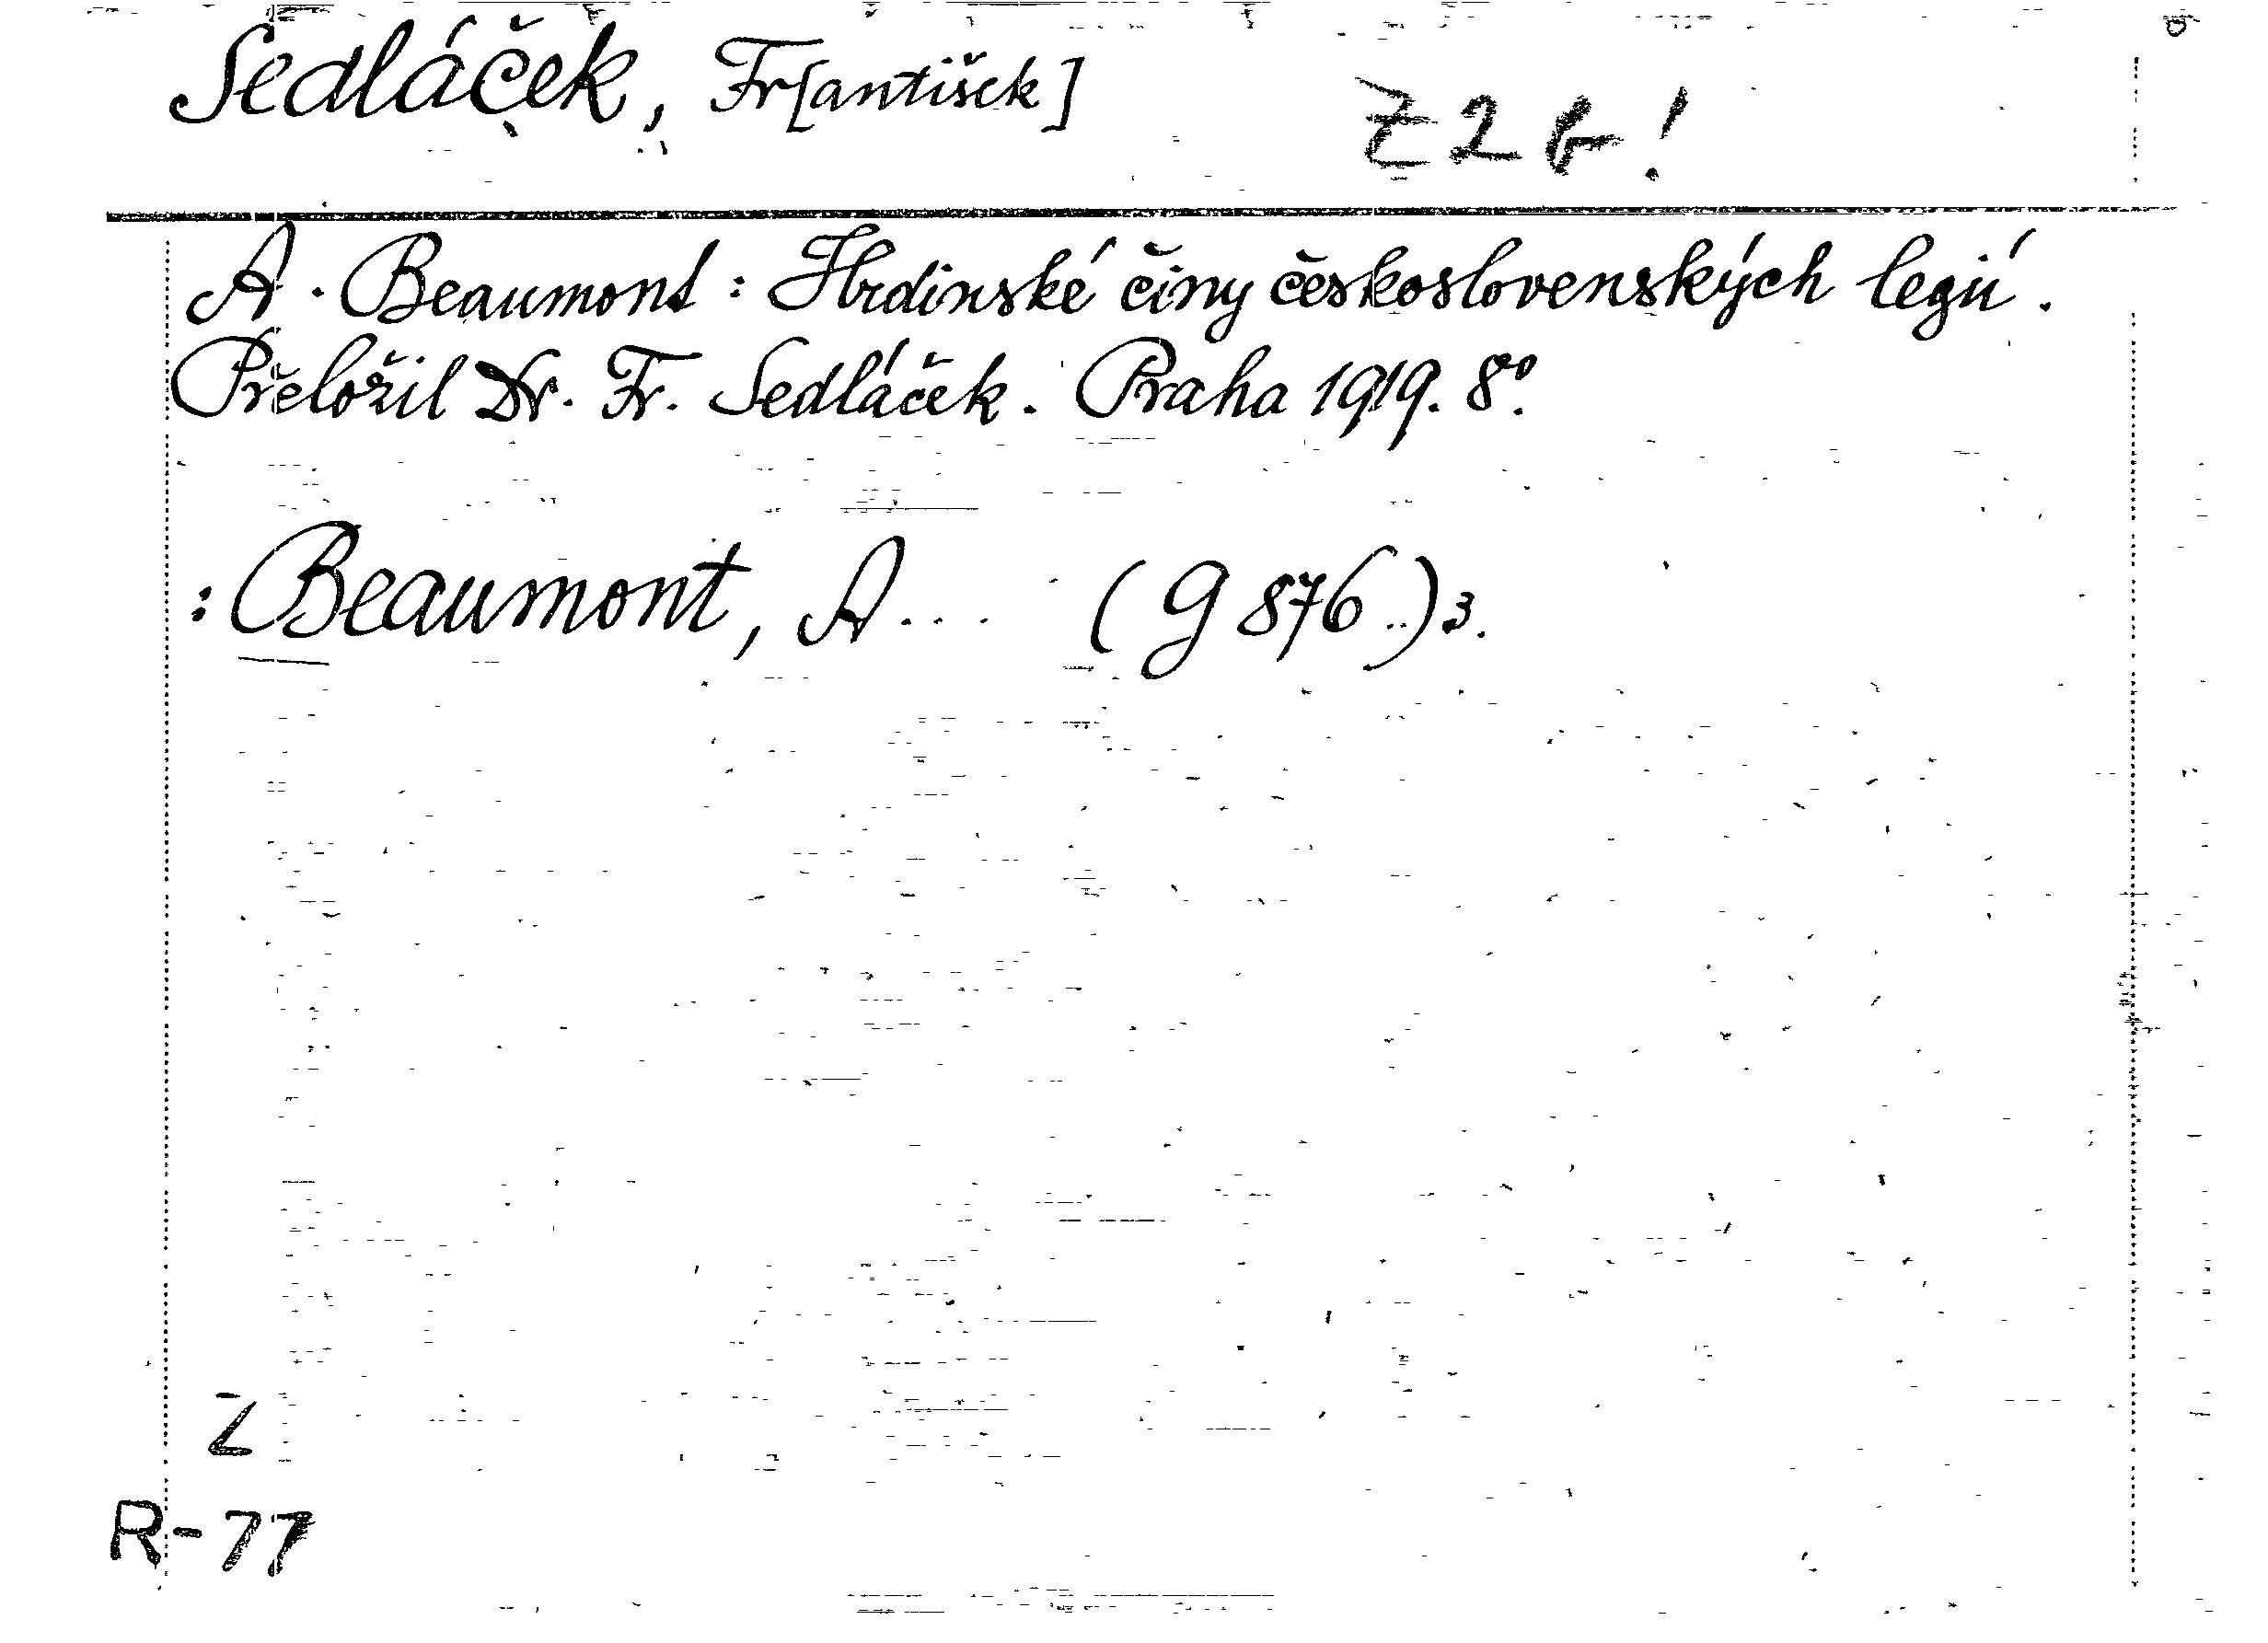 Sedláček, Fr[antišek]
A. Beaumont: Hrdinské činy československých legií.
Přeložil Dr. Fr. Sedláček. Praha 1919. 8°.
: Beaumont, A... (G 876..)3.
Z
R-77